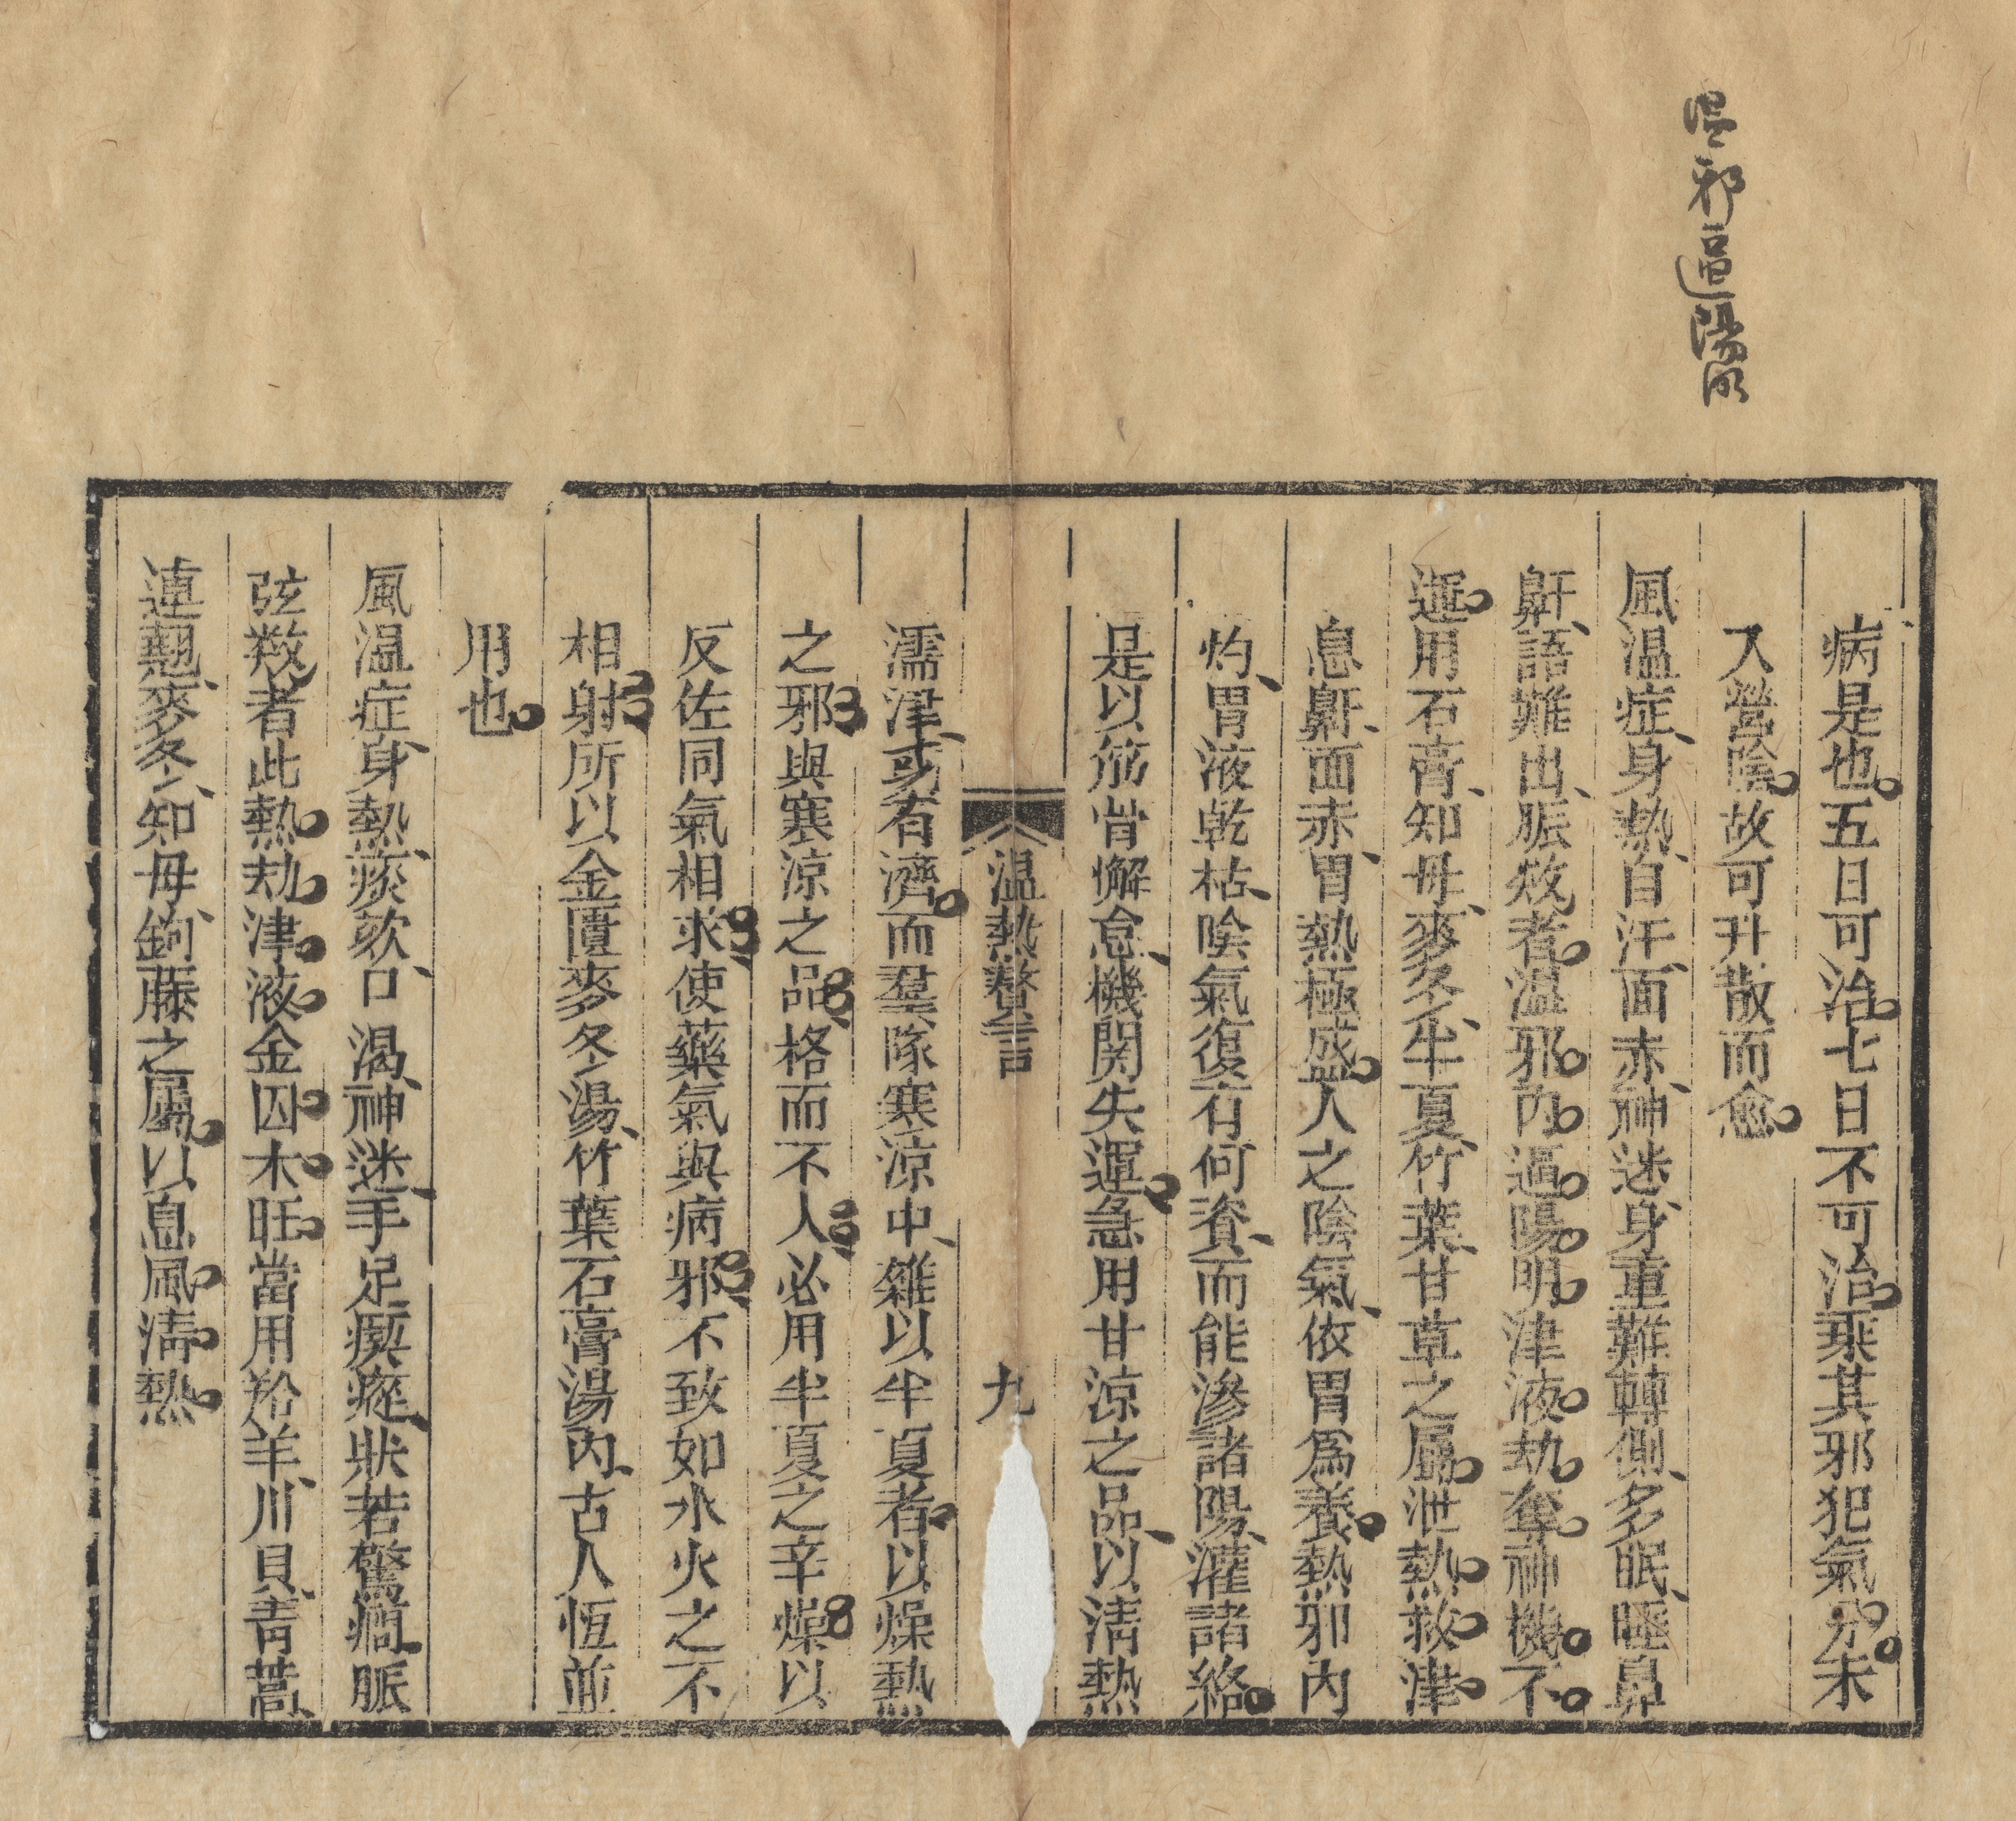 温邪逼陽明
病是也五日可治七日不可治乘其邪犯氣分未
入營陰故可升散而愈
風温症身熱自汗面赤神迷身重難轉側多眠睡鼻
鼾語難出脈数者温邪内逼陽明津液劫奪神機不
運用石膏知母麥冬半夏竹葉甘草之屬泄熱救津
息鼾面赤胃熱極盛人之陰氣依胃爲養熱邪内
灼胃液乾枯陰氣復有何資而能滲諸陽灌諸絡
是以筋骨懈怠機関失運急用甘涼之品以清熱
温熱贅言 九
濡津或有濟而羣隊寒涼中雜以半夏者以燥熱
之邪與寒涼之品格而不人必用半夏之辛燥以
反佐同氣相求使藥氣與病邪不致如水火之不
相射所以金匱麥冬湯竹葉石膏湯内古人恆並
用也
風温症身熱痰欬口渴神迷手足瘈瘲狀若驚癇脈
弦数者此熱劫津液金囚木旺當用羚羊川貝青蒿
連翹麥冬知母鉤藤之屬以息風清熱